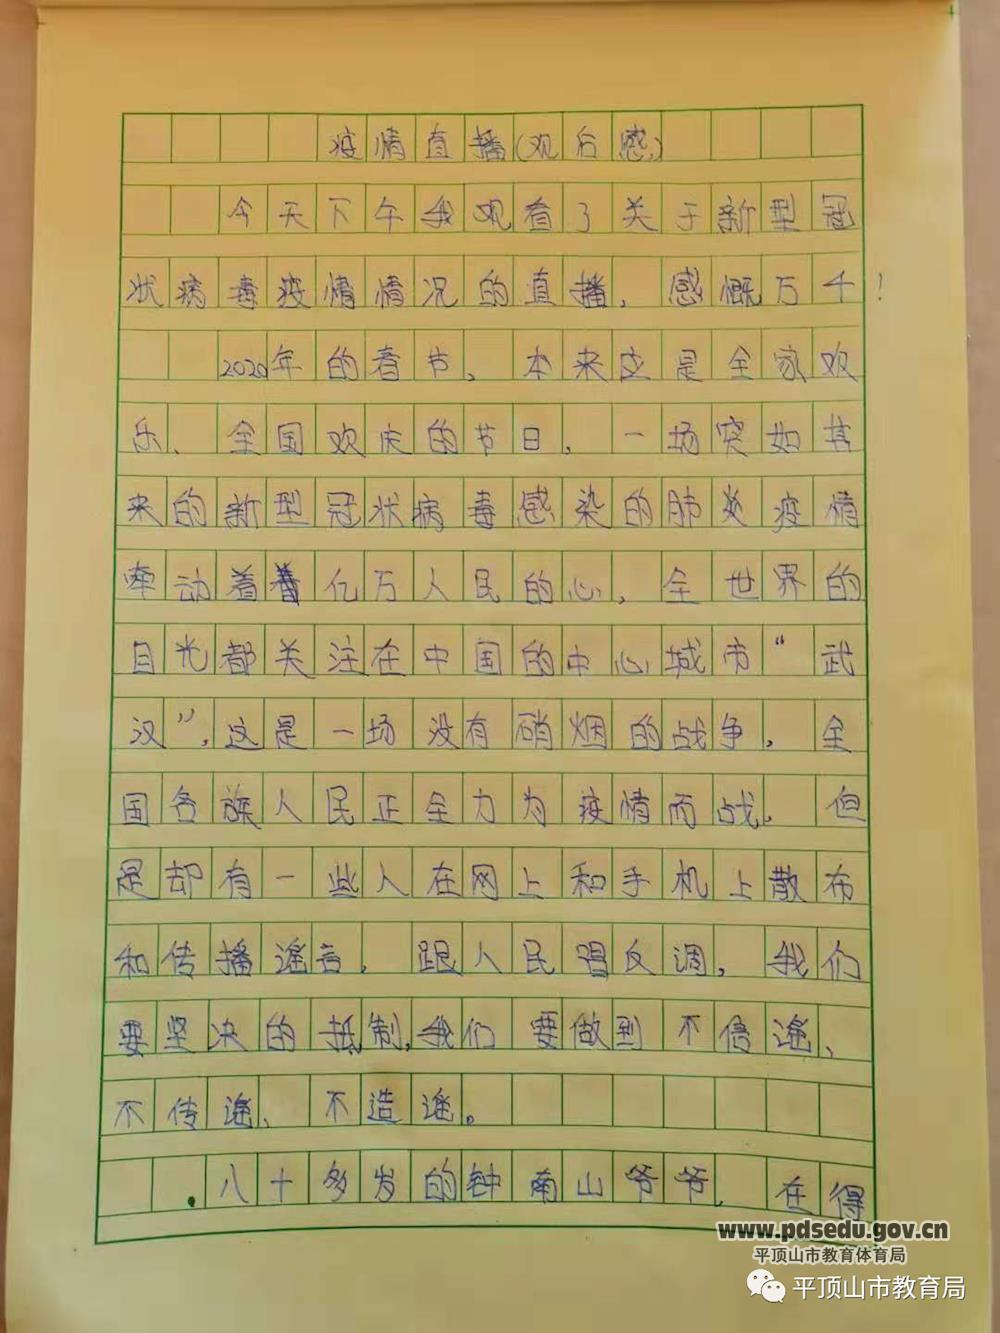 疫情直播(观后感)
今天下午我观看了关于新型冠
状病毒疫情情况的直播,感慨万千!
2020年的春节,本来应是全家欢
乐、全国欢庆的节日,一场突如其
来的新型冠状病毒感染的肺炎疫情
牵动着着亿万人民的心,全世界的
目光都关注在中国的中心城市“武
汉”,这是一场没有硝烟的战争,全
国各族人民正全力为疫情而战,但
是却有一些人在网上和手机上散布
和传播谣言,跟人民唱反调,我们
要坚决的抵制,我们要做到不信谣、
不传谣、不造谣。
八十多岁的钟南山爷爷,在得
www.pdsedu.gov.cn
平顶山市教育体育局
平顶山市教育局